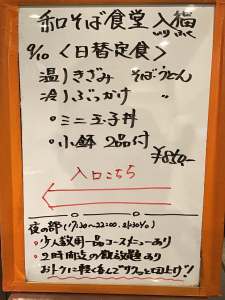 和そば食堂 入福
いりふく
9/10 〈日替定食〉
温)きざみ そばうどん
冷)ぶっかけ 〃
・ミニ玉子丼
・小鉢 2品付
¥850.-
入口こちら
夜の部(17:30〜22:00, 21:30 L.O)
・少人数用一品コースメニューあり
・2時間の飲放題あり
おトクに軽く呑んでサクッと仕上げ!